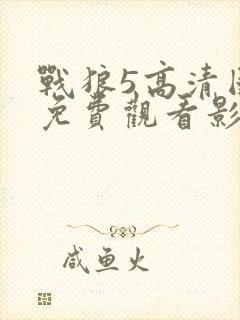 戰狼5高清
免費觀看影
咸鱼火